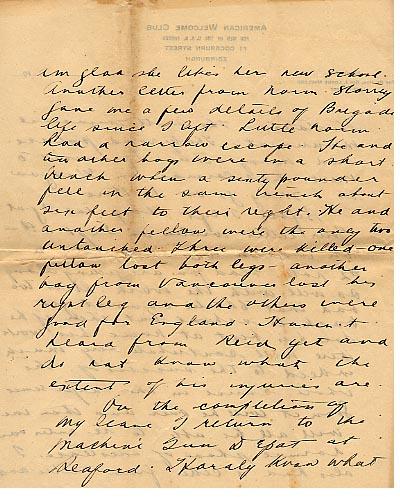 AMERICAN WELCOME CLUB
FOR MEN IN THE U.S.A. FORCES
71 COCKBURN STREET
EDINBURGH
im glad she likes her new school.
Another letter from Norm. Storey
gave me a few details of Brigade
life since I left. Little Norm
Had a narrow escape. He and
two other boys were in a short
trench when a sixty pounder
fell in the same trench about
six feet to their right. He and
another fellow were the only two
untouched. Three were killed - one
fellow lost both legs - another
boy from Vancouver lost his
right leg and the others were
good for England. Haven't
heard from Reid yet and
do not know what the
extent of his injuries are.
On the completion of
my leave I return to the
Machine Gun Depot at
Seaford. Hardly know what